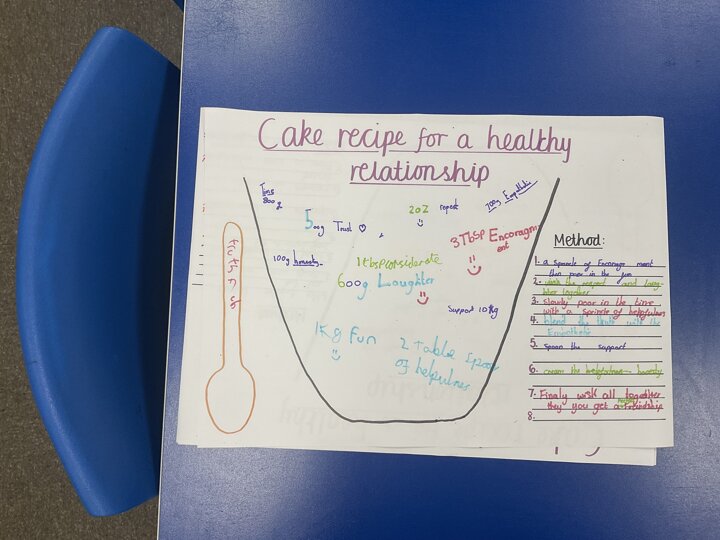 Cake recipe for a healthy
relationship
Time
800g
500g Trust
2oz repect
700g Empathetic
3 Tbsp Encoragm
ent
100g honesty
1 tbsp considerate
600g Laughter
Support 10kg
1Kg Fun
2 Table Spoon
of helpulner
truthful
Method:
1. a sprincle of Encoragment
then poar in the fun
2. the respect and laug-
hter together
3. Slowly poar in the time
with a sprincle of helpfulness
4. blend the truth with the
Empathetic
5. Spoon the support
6. cream the helpfulness honesty
7. Finaly wisk all together
they you get a Friendship
8.